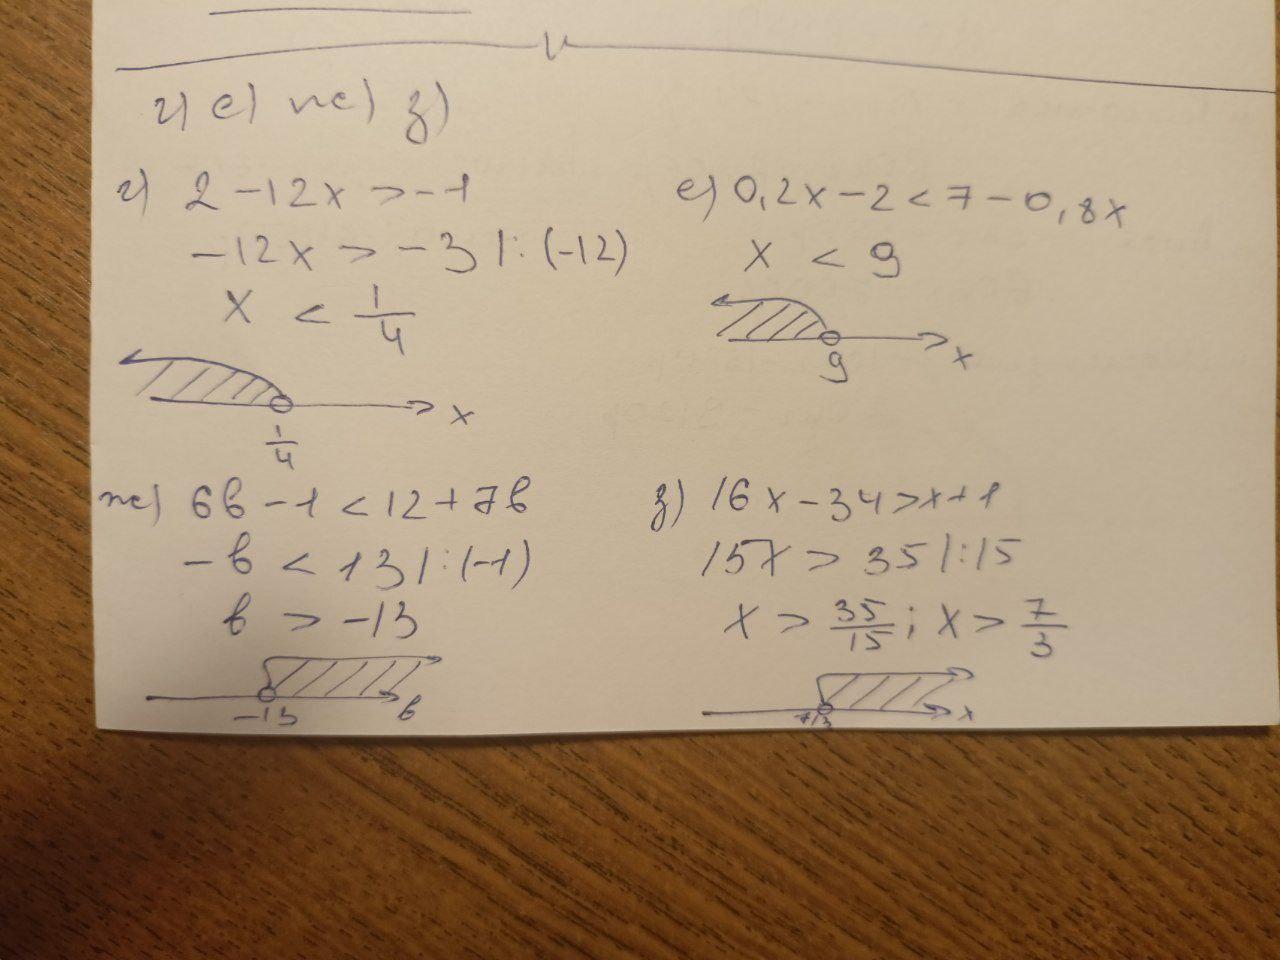 г) е) ж) з)
г) 2 - 12x > -1
-12x > -3 |: (-12)
x < 1/4
1/4 x
е) 0,2x - 2 < 7 - 0,8x
x < 9
9 x
ж) 6в - 1 < 12 + 7в
-в < 13 |: (-1)
в > -13
-13 в
з) 16x - 34 > x + 1
15x > 35 |: 15
x > 35/15; x > 7/3
7/3 x